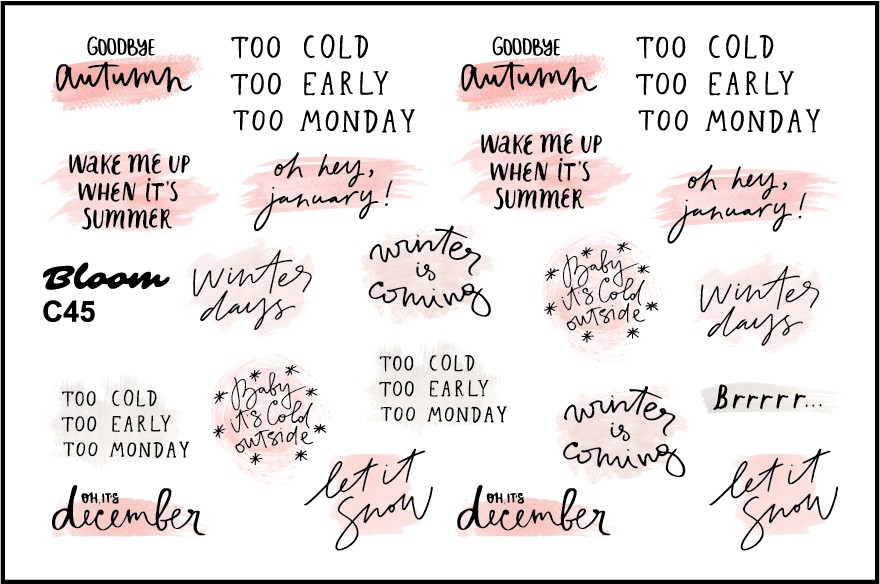 GOODBYE
autumn
TOO COLD
TOO EARLY
TOO MONDAY
GOODBYE
autumn
TOO COLD
TOO EARLY
TOO MONDAY
WAKE ME UP
WHEN iT'S
SUMMER
oh hey,
january!
WAKE ME UP
WHEN iT'S
SUMMER
oh hey,
january!
Bloom
C45
Winter
days
winter
is
coming
Baby
it's Cold
outside
Winter
days
TOO COLD
TOO EARLY
TOO MONDAY
Baby
it's Cold
outside
TOO COLD
TOO EARLY
TOO MONDAY
winter
is
coming
Brrrrr...
OH, IT'S
december
let it
snow
OH, IT'S
december
let it
snow